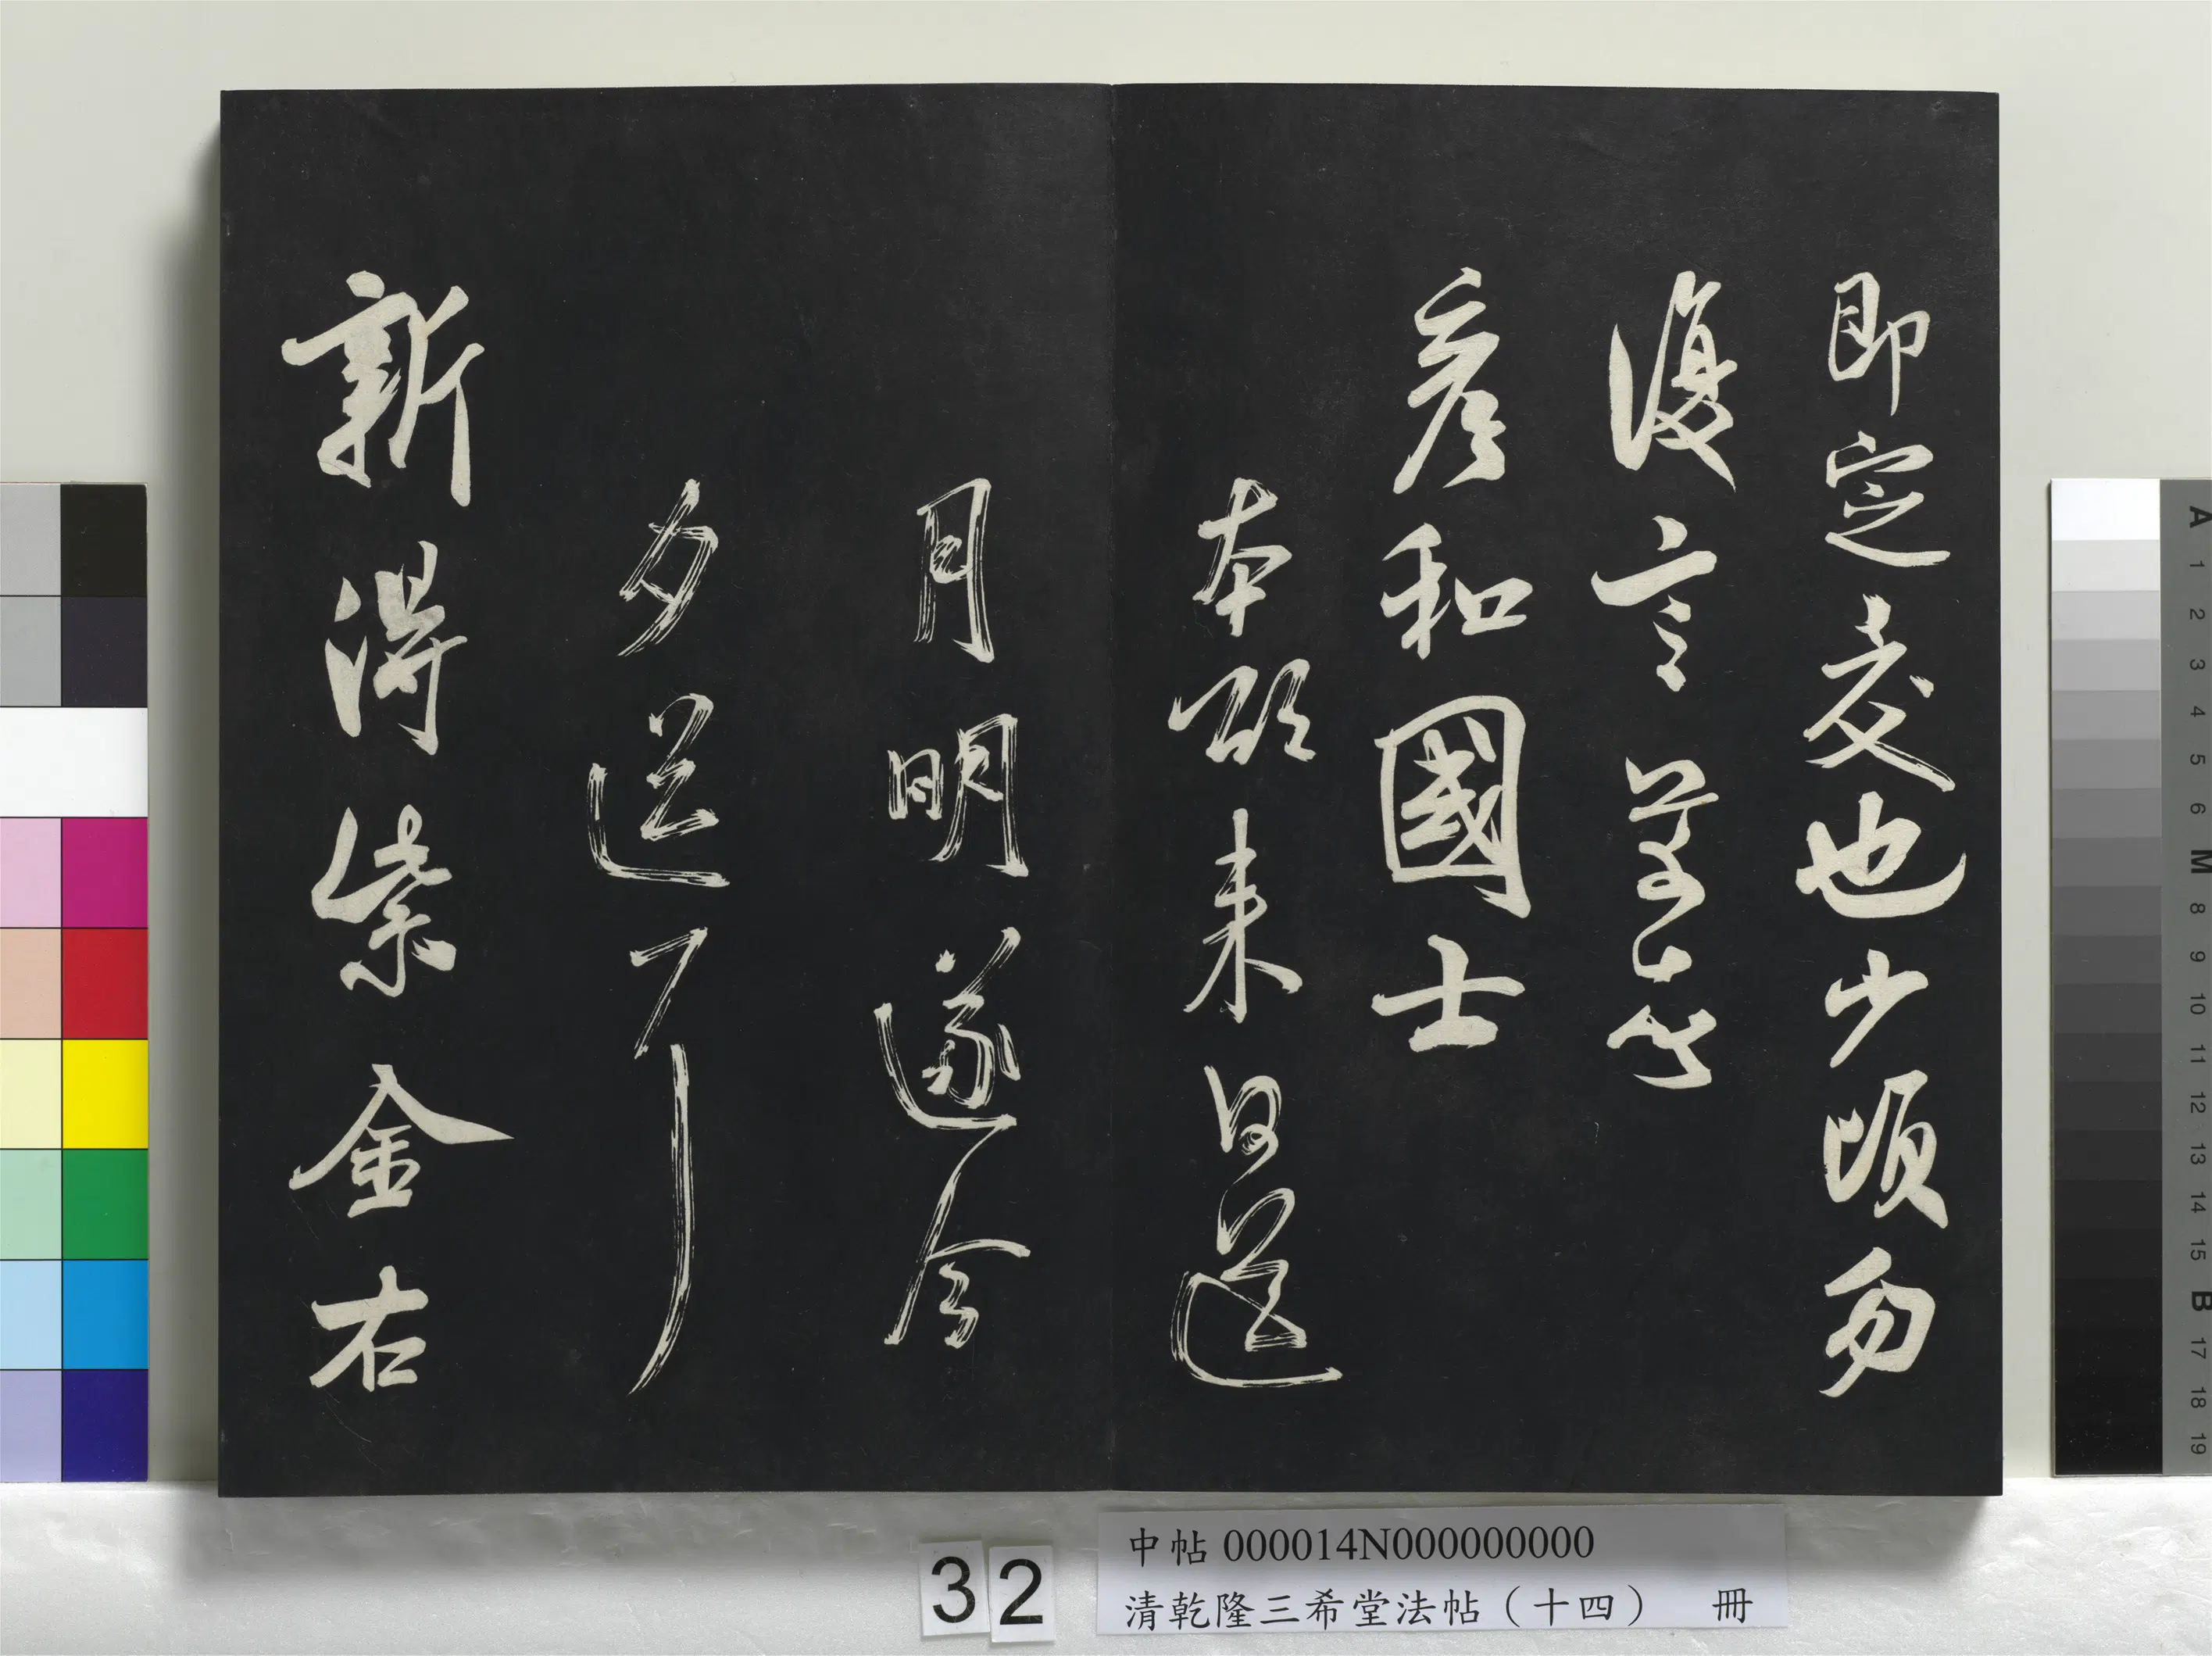 即定交也少頃勿
復言芾頓首
彥和國士
本欲來日送
月明遂今
夕送耳
新得紫金右
32
中帖 000014N000000000
清乾隆三希堂法帖（十四） 冊
A 1 2 3 4 5 6 M 8 9 10 11 12 13 14 15 B 17 18 19